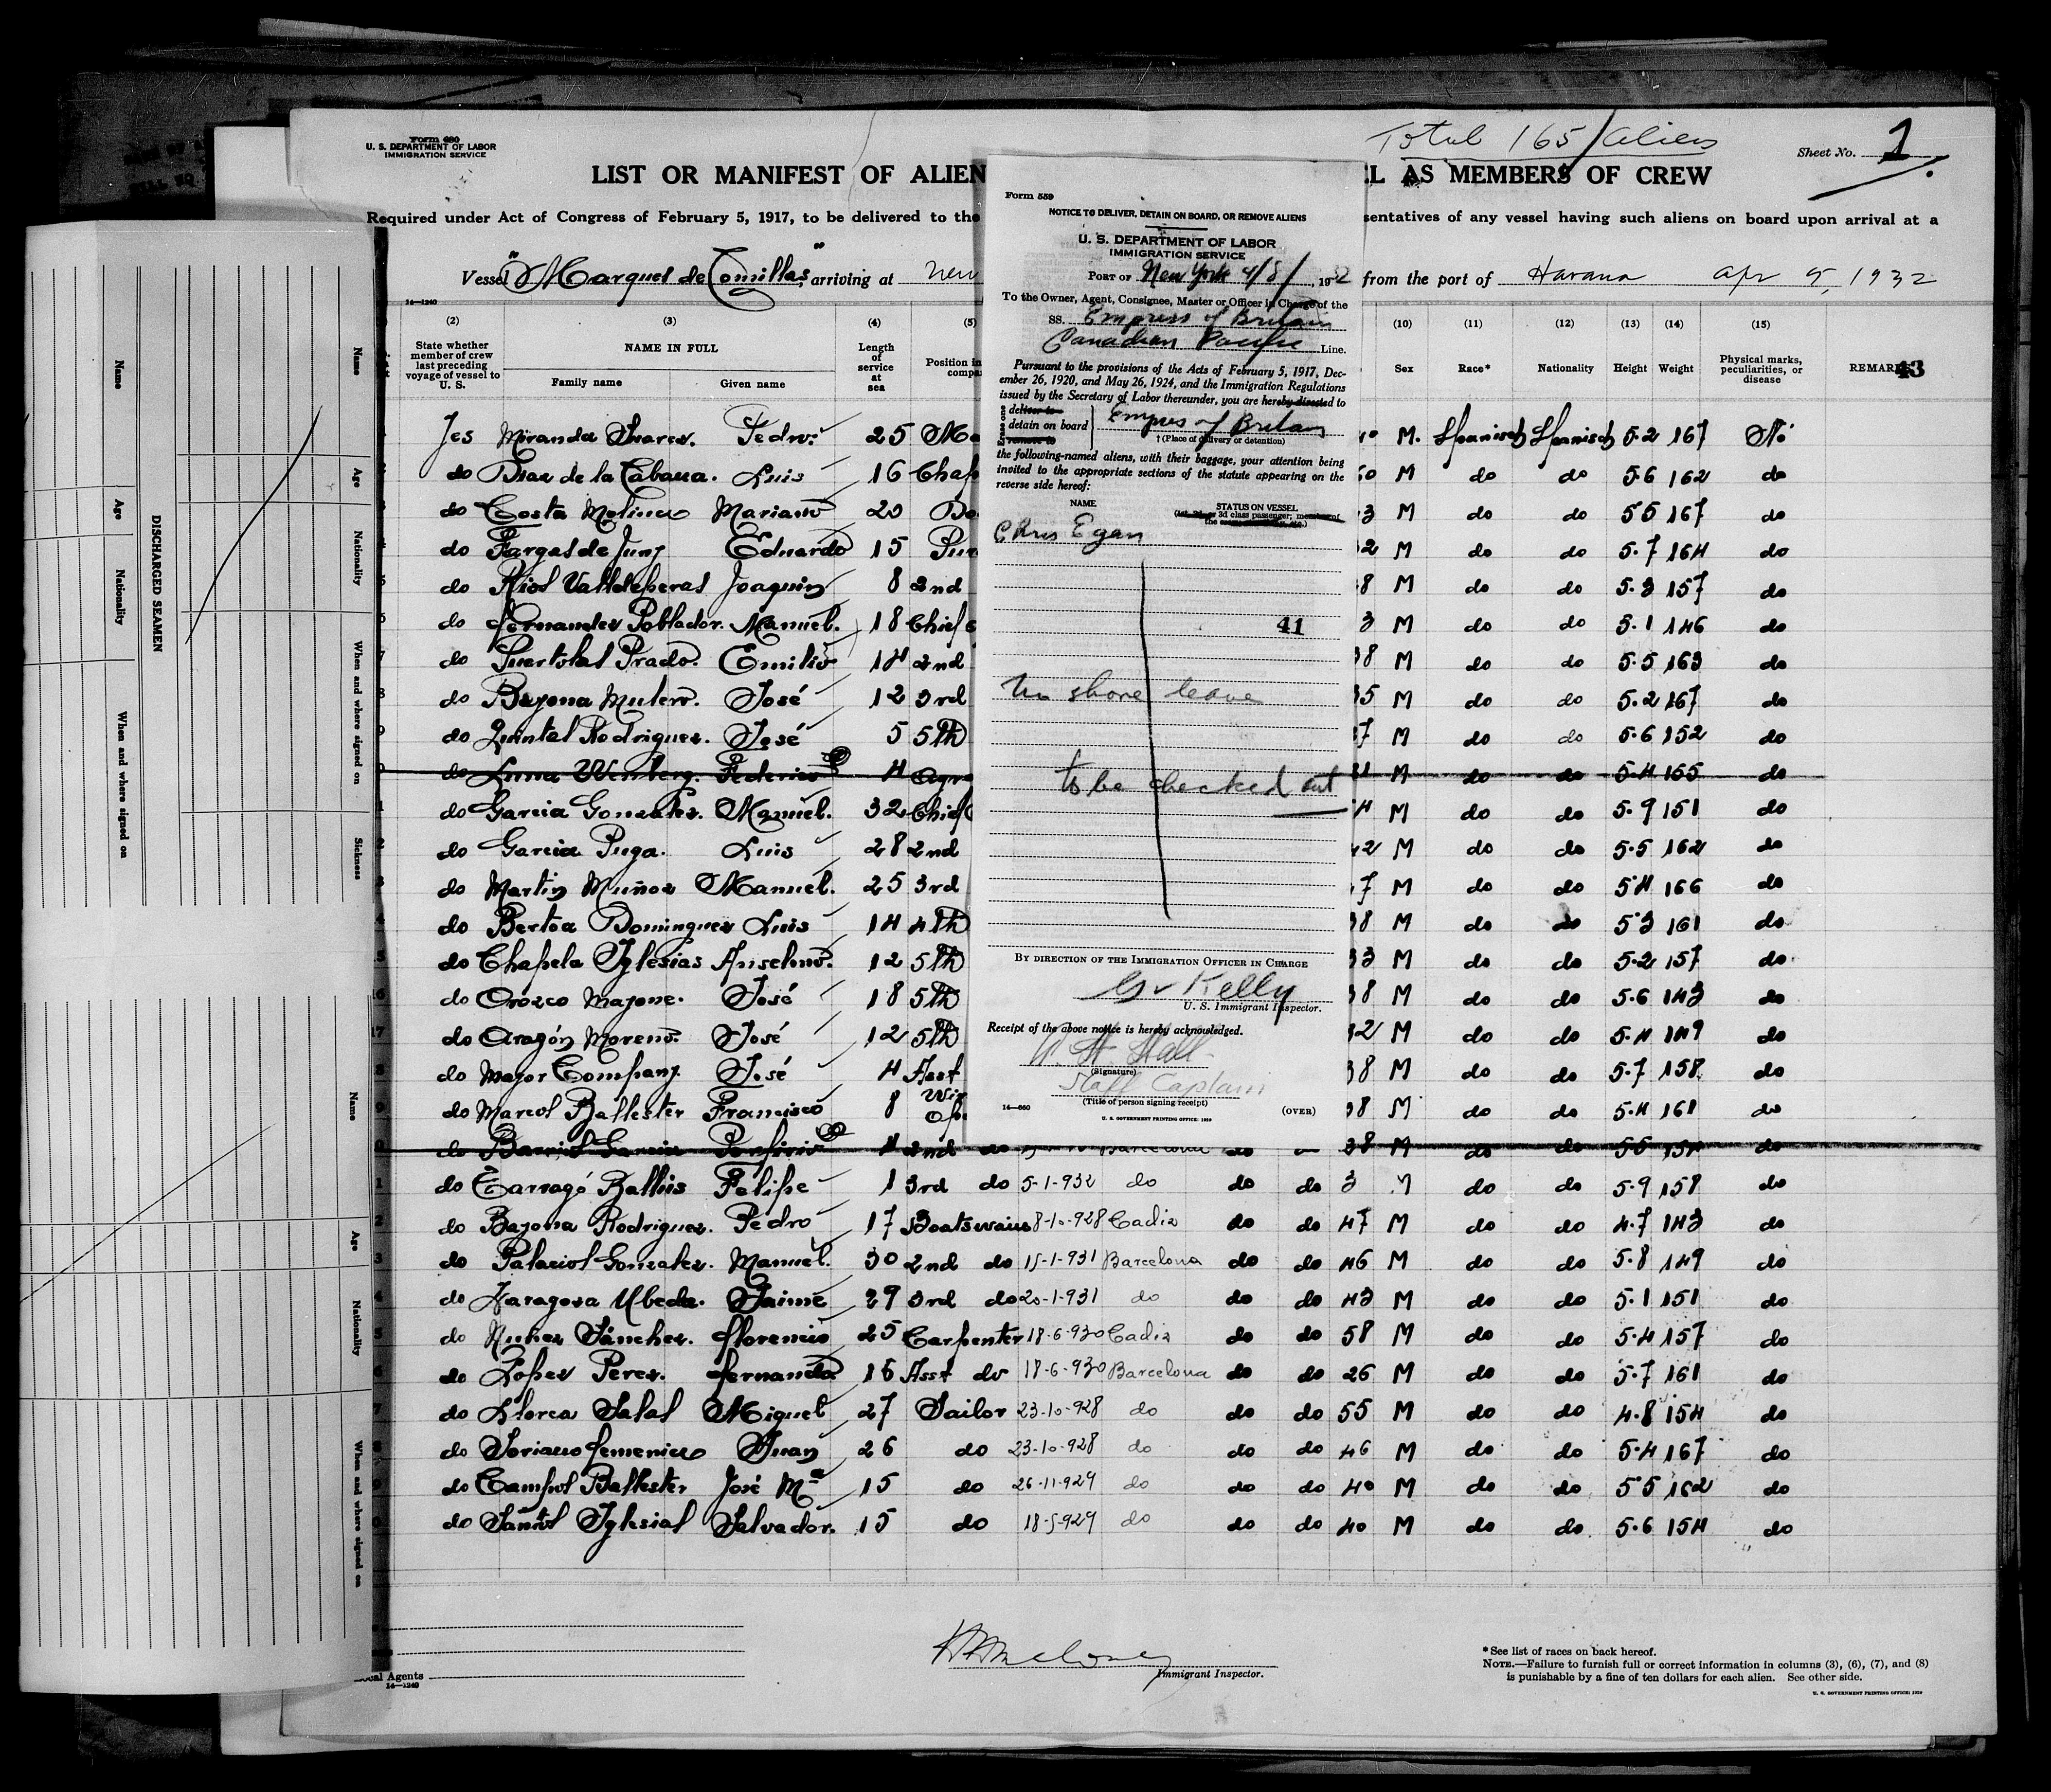 Form 680
U. S. DEPARTMENT OF LABOR
IMMIGRATION SERVICE
Total 165 Aliens
Sheet No. 1
LIST OR MANIFEST OF ALIEN
EL AS MEMBERS OF CREW
Required under Act of Congress of February 5, 1917, to be delivered to the
sentatives of any vessel having such aliens on board upon arrival at a
Vessel "Marques de Comillas", arriving at new
from the port of Havana apr 5, 1932
14—1240
(2) (3) (4) (5) (10) (11) (12) (13) (14) (15)
State whether member of crew last preceding voyage of vessel to U. S.
NAME IN FULL
Family name Given name
Length of service at sea
Position in
compa
Sex Race* Nationality Height Weight Physical marks, peculiarities, or disease REMARKS
43
Yes Miranda Suarez. Pedro. 25 Ma M. Spanisch Spanisch 5.2 167 No
do Diaz de la Cabarra. Luis 16 Chap M do do 5.6 162 do
do Costa Molinas Mariano 20 Do M do do 5 5 167 do
do Fargas de Juny Eduardo 15 Pur M do do 5.7 164 do
do Rios Valldeperas Joaquin 8 2nd M do do 5.3 157 do
do Fernandez Poblador. Manuel. 18 Chief M do do 5.1 146 do
do Puertolas Prado. Emilio 14 2nd M do do 5.5 163 do
do Bayona Mulero. José 12 3rd M do do 5.2 167 do
do Quintal Rodriguez. José 5 5th M do do 5.6 152 do
do Luna Wenberg. Federico 4 Agr M do do 5.4 155 do
do Garcia Gonzalez. Manuel. 32 Chief M do do 5.9 151 do
do Garcia Puga. Luis 28 2nd 42 M do do 5.5 162 do
do Martin Muñoz Manuel. 25 3rd M do do 5 4 166 do
do Bertoa Dominguez Luis 14 4th M do do 5 3 161 do
do Chapela Iglesias Anselmo. 12 5th M do do 5.2 157 do
do Orozco Majone. José 18 5th M do do 5.6 143 do
do Aragón Moreno. José 12 5th M do do 5.4 149 do
do Mayor Company. José 4 Asst M do do 5.7 158 do
do Marcos Ballester Francisco 8 Wir Op. M do do 5.4 161 do
do Barrios Garcia Porfirio 4 2nd do Barcelona do 38 M do do 5.5 154 do
do Tarragó Balliis Felipe 1 3rd do 5-1-932 do do do 3 M do do 5.9 158 do
do Bayona Rodriguez. Pedro 17 Boatswain 8-10-928 Cadiz do do 47 M do do 4.7 143 do
do Palacios Gonzalez. Manuel. 30 2nd do 15-1-931 Barcelona do do 46 M do do 5.8 149 do
do Zaragoza Ubeda. Jaime 29 3rd do 20-1-931 do do do 43 M do do 5.1 151 do
do Nuñez Sánchez. Florencio 25 Carpenter 18-6-930 Cadiz do do 58 M do do 5.4 157 do
do Lopez Perez. Fernando 16 Asst do 18-6-930 Barcelona do do 26 M do do 5.7 161 do
do Llorca Salas Miguel 27 Sailor 23-10-928 do do do 55 M do do 4.8 154 do
do Soriano Femenias Juan 26 do 23-10-928 do do do 46 M do do 5.4 167 do
do Campos Ballester José Mª 15 do 26-11-929 do do do 40 M do do 5 5 162 do
do Santos Iglesias Salvador. 15 do 18-5-929 do do do 40 M do do 5.6 154 do
Immigrant Inspector.
cal Agents
14—1240
*See list of races on back hereof.
NOTE.—Failure to furnish full or correct information in columns (3), (6), (7), and (8)
is punishable by a fine of ten dollars for each alien. See other side.
U. S. GOVERNMENT PRINTING OFFICE: 1930
Form 559
NOTICE TO DELIVER, DETAIN ON BOARD, OR REMOVE ALIENS
U. S. DEPARTMENT OF LABOR
IMMIGRATION SERVICE
PORT OF New York 4/8/, 1932
To the Owner, Agent, Consignee, Master or Officer in Charge of the
SS. Empress of Britain
Canadian Pacific Line.
Pursuant to the provisions of the Acts of February 5, 1917, Dec-
ember 26, 1920, and May 26, 1924, and the Immigration Regulations
issued by the Secretary of Labor thereunder, you are hereby directed to
Erase one
deliver to
detain on board
remove to
Empress of Britain
† (Place of delivery or detention)
the following-named aliens, with their baggage, your attention being
invited to the appropriate sections of the statute appearing on the
reverse side hereof:
NAME STATUS ON VESSEL
(1st, 2d, or 3d class passenger; member of
Chris Egan
41
shore leave
to be checked out
BY DIRECTION OF THE IMMIGRATION OFFICER IN CHARGE
Kelly
U. S. Immigrant Inspector.
Receipt of the above notice is hereby acknowledged.
(Signature)
Staff Captain
(Title of person signing receipt)
14—660 (OVER)
U. S. GOVERNMENT PRINTING OFFICE: 1930
DISCHARGED SEAMEN
Name Age Nationality When and where signed on
Name Age Nationality When and where signed on Sickness
Name Age Nationality When and where signed on